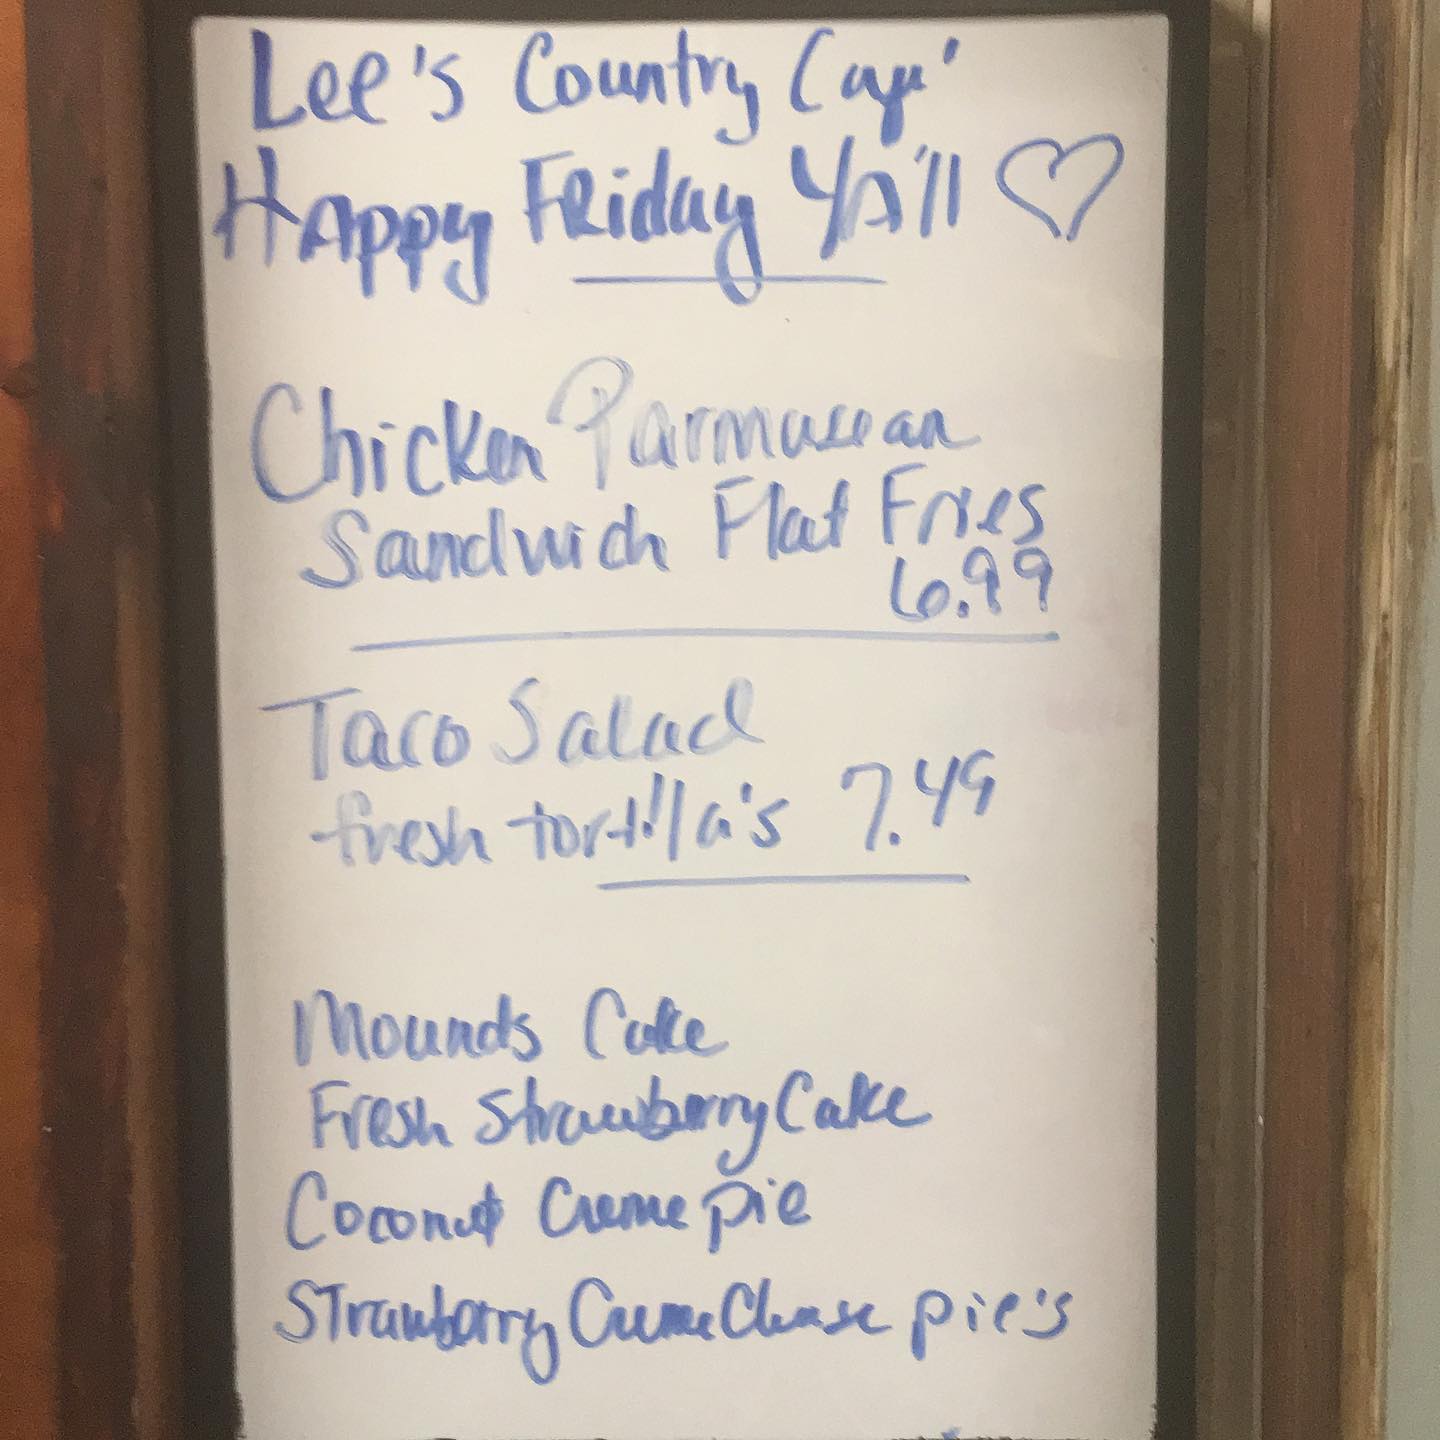 Lee's Country Cafe'
Happy Friday Ya'll
Chicken Parmasean
Sandwich Flat Fries
6.99
Taco Salad
fresh tortilla's 7.49
Mounds Cake
Fresh Strawberry Cake
Coconut Creme pie
Strawberry Creme Chese pie's